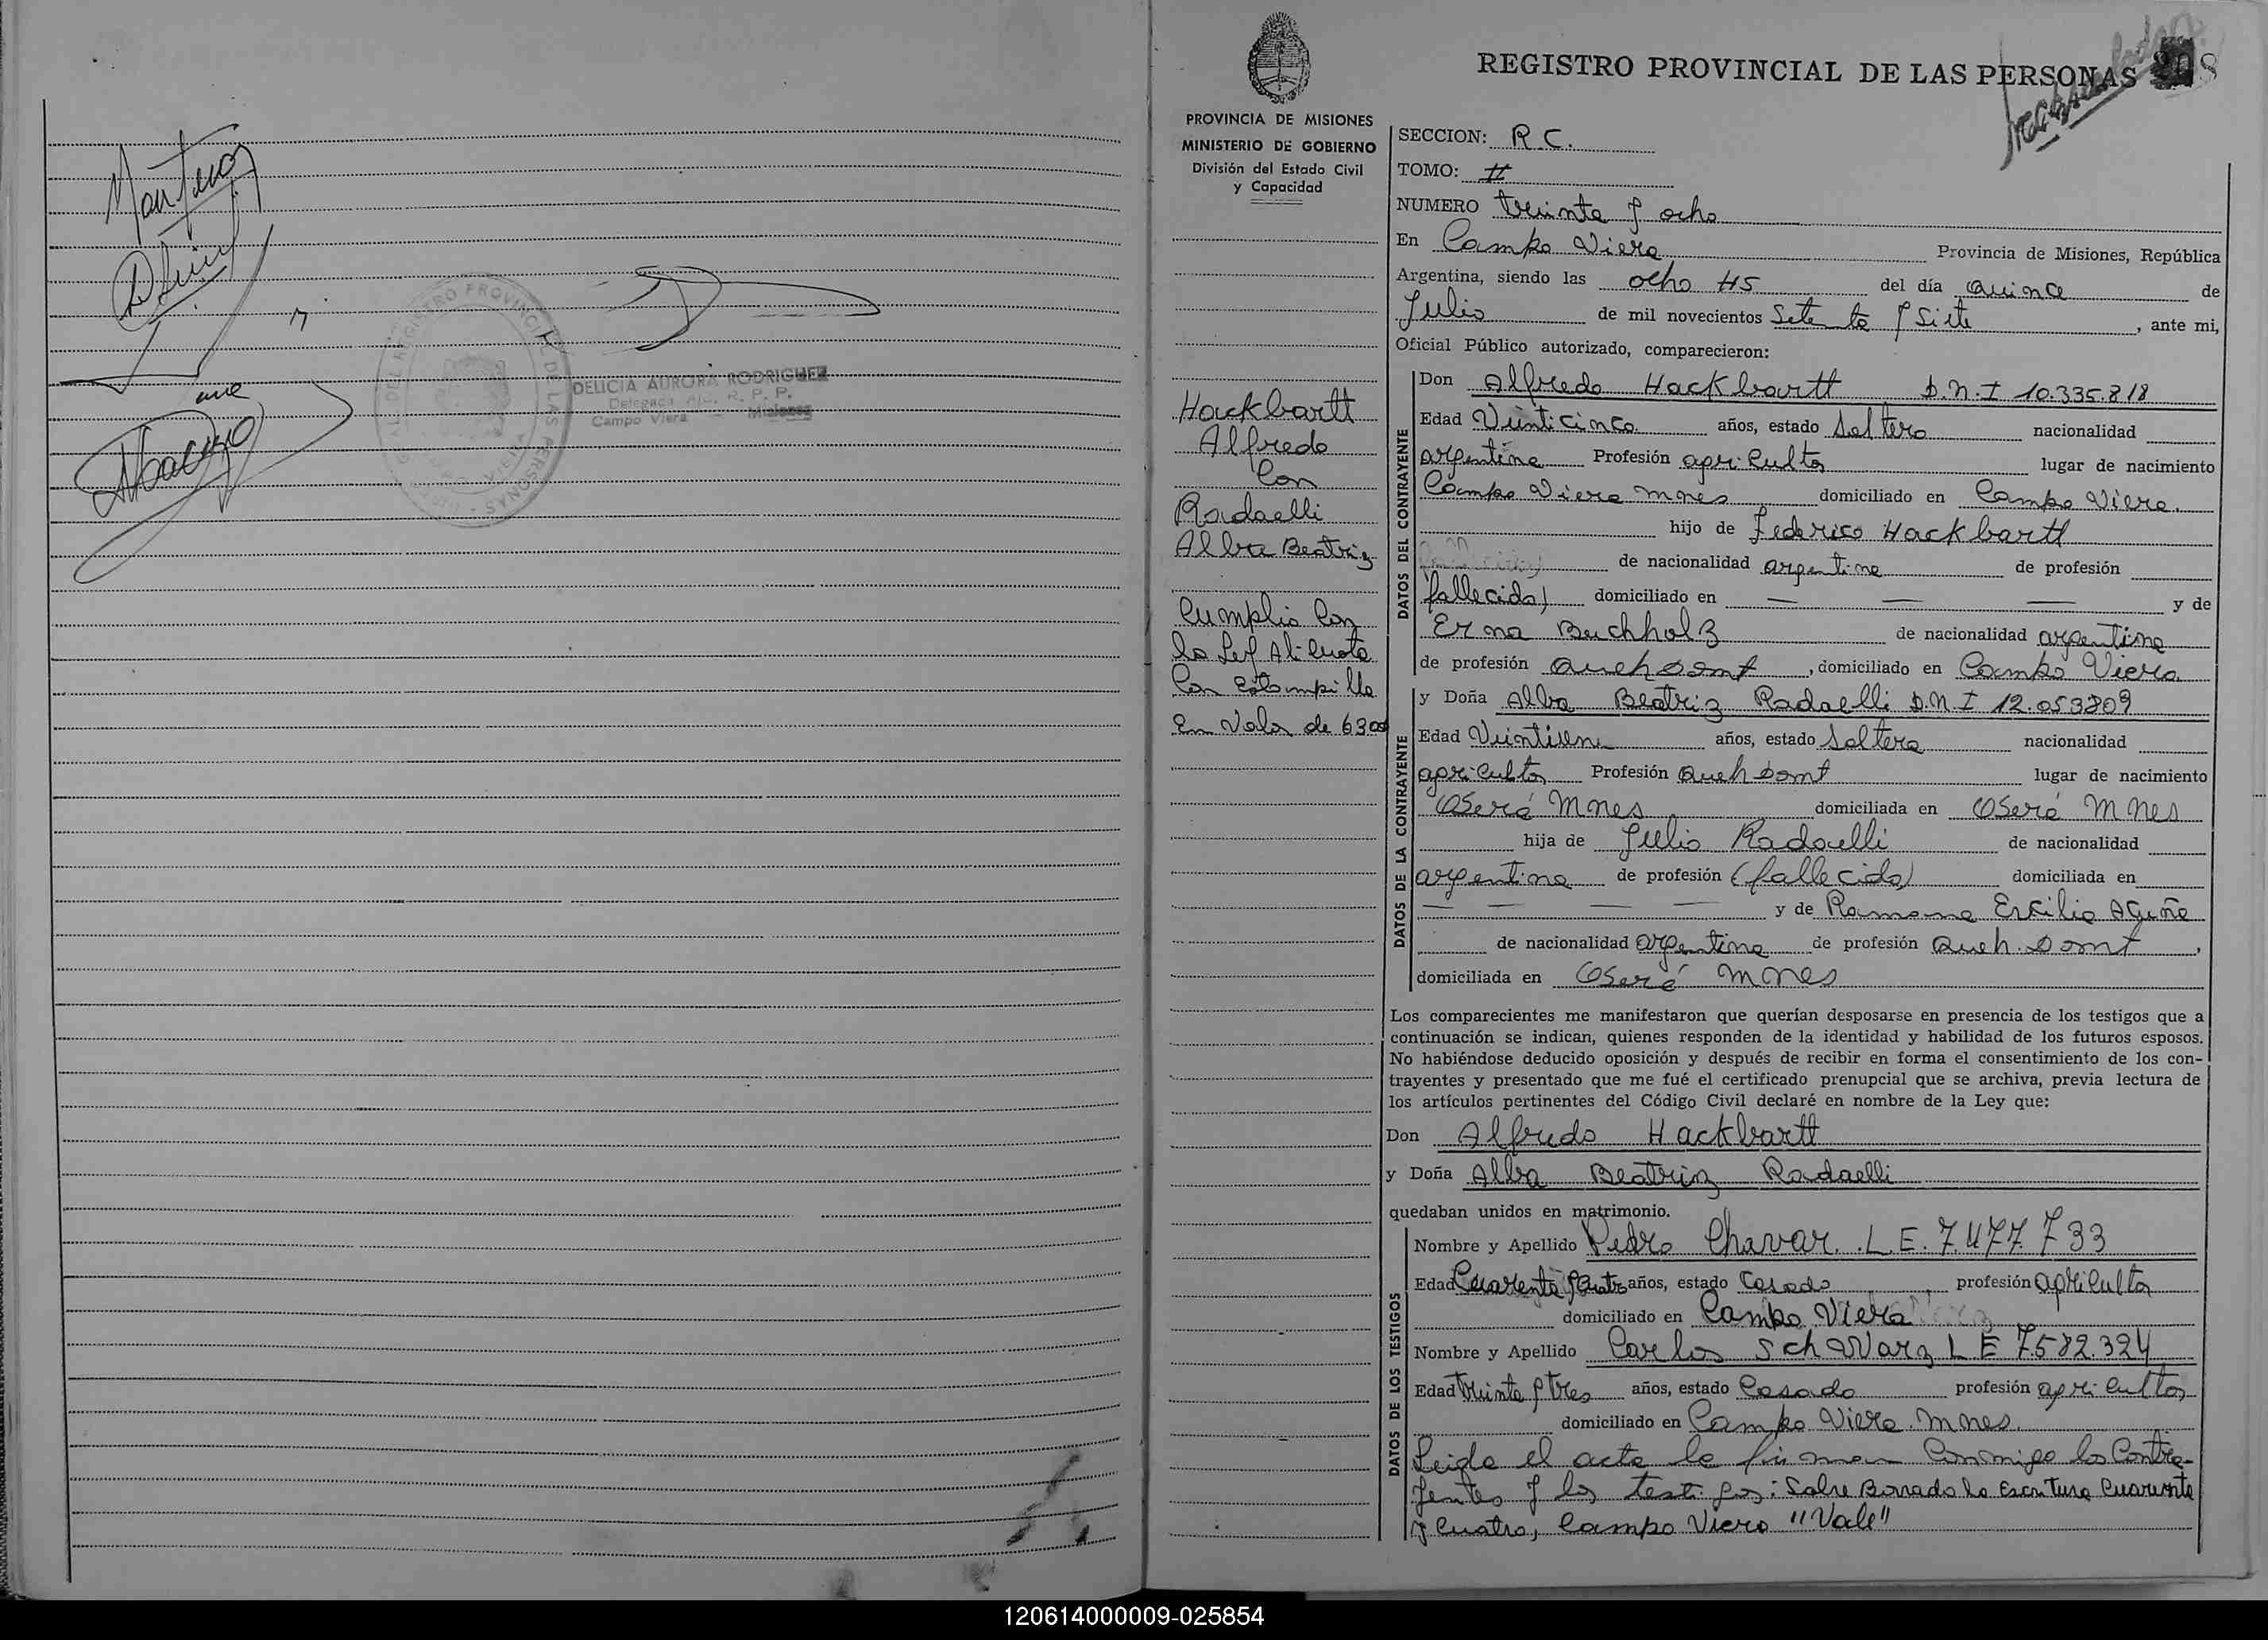 DELICIA AURORA RODRIGUEZ
Delegada R. P. P.
Campo Viera — Misiones
REGISTRO PROVINCIAL DE LAS PERSONAS
PROVINCIA DE MISIONES
MINISTERIO DE GOBIERNO
División del Estado Civil
y Capacidad
Hackbartt
Alfredo
Con
Radaelli
Alba Beatriz
Cumplio Con
la Ley Alicuota
Con Estampilla
En Valor de 6300
SECCION: R.C.
TOMO: II
NUMERO treinta y ocho
En Campo Viera Provincia de Misiones, República
Argentina, siendo las ocho 45 del día quince de
Julio de mil novecientos Setenta y Siete, ante mi,
Oficial Público autorizado, comparecieron:
DATOS DEL CONTRAYENTE
Don Alfredo Hackbartt D.N.I 10.335.818
Edad Veinticinco años, estado Soltero nacionalidad
argentina Profesión agricultor lugar de nacimiento
Campo Viera Mnes domiciliado en Campo Viera.
hijo de Federico Hackbartt
de nacionalidad argentina de profesión
(fallecido) domiciliado en — — — y de
Erna Buchholz de nacionalidad argentina
de profesión Queh Domt, domiciliado en Campo Viera
DATOS DE LA CONTRAYENTE
y Doña Alba Beatriz Radaelli D.N.I 12.053809
Edad Veintiun años, estado Soltera nacionalidad
agricultor Profesión Queh Domt lugar de nacimiento
Oberá Mnes domiciliada en Oberá Mnes
hija de Julio Radaelli de nacionalidad
argentina de profesión (fallecido) domiciliada en
— — — — y de Ramona Ercilia Acuña
de nacionalidad argentina de profesión Queh. Domt,
domiciliada en Oberá Mnes
Los comparecientes me manifestaron que querían desposarse en presencia de los testigos que a
continuación se indican, quienes responden de la identidad y habilidad de los futuros esposos.
No habiéndose deducido oposición y después de recibir en forma el consentimiento de los con-
trayentes y presentado que me fué el certificado prenupcial que se archiva, previa lectura de
los artículos pertinentes del Código Civil declaré en nombre de la Ley que:
Don Alfredo Hackbartt
y Doña Alba Beatriz Radaelli
quedaban unidos en matrimonio.
DATOS DE LOS TESTIGOS
Nombre y Apellido Pedro Chavar. L.E. 7.477.733
Edad Cuarenta y Cuatro años, estado Casado, profesión agricultor
domiciliado en Campo Viera
Nombre y Apellido Carlos Schwarz L E 7.582.324
Edad Treinta y tres años, estado Casado profesión agricultor
domiciliado en Campo Viera. Mnes.
Leida el acta la firman Conmigo los Contra-
yentes y los testigos: Sobre Borrado la Escritura Cuarenta
y Cuatro, Campo Viera "Vale"
120614000009-025854